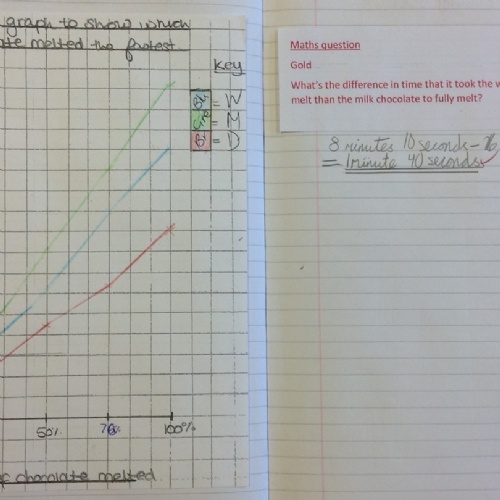 graph to show which
melted the fastest
Key
= W
= M
= D
50%
100%
chocolate melted
Maths question
Gold
What's the difference in time that it took the
melt than the milk chocolate to fully melt?
8 minutes 10 seconds -
= 1 minute 40 seconds